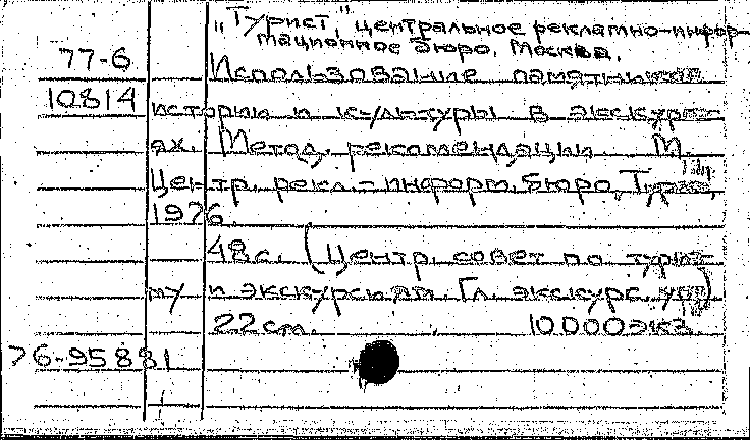 „Турист", центральное рекламно-инфор-
мационное бюро, Москва.
77-6
Использование памятников
10814
истории и культуры в экскурси-
ях. Метод. рекомендации. М.
Центр. рекл.-информ. бюро „Турист",
1976.
48 с. (Центр. совет по туриз-
му и экскурсиям. Гл. экскурс. упр)
22 см. 10000 экз.
76-95881